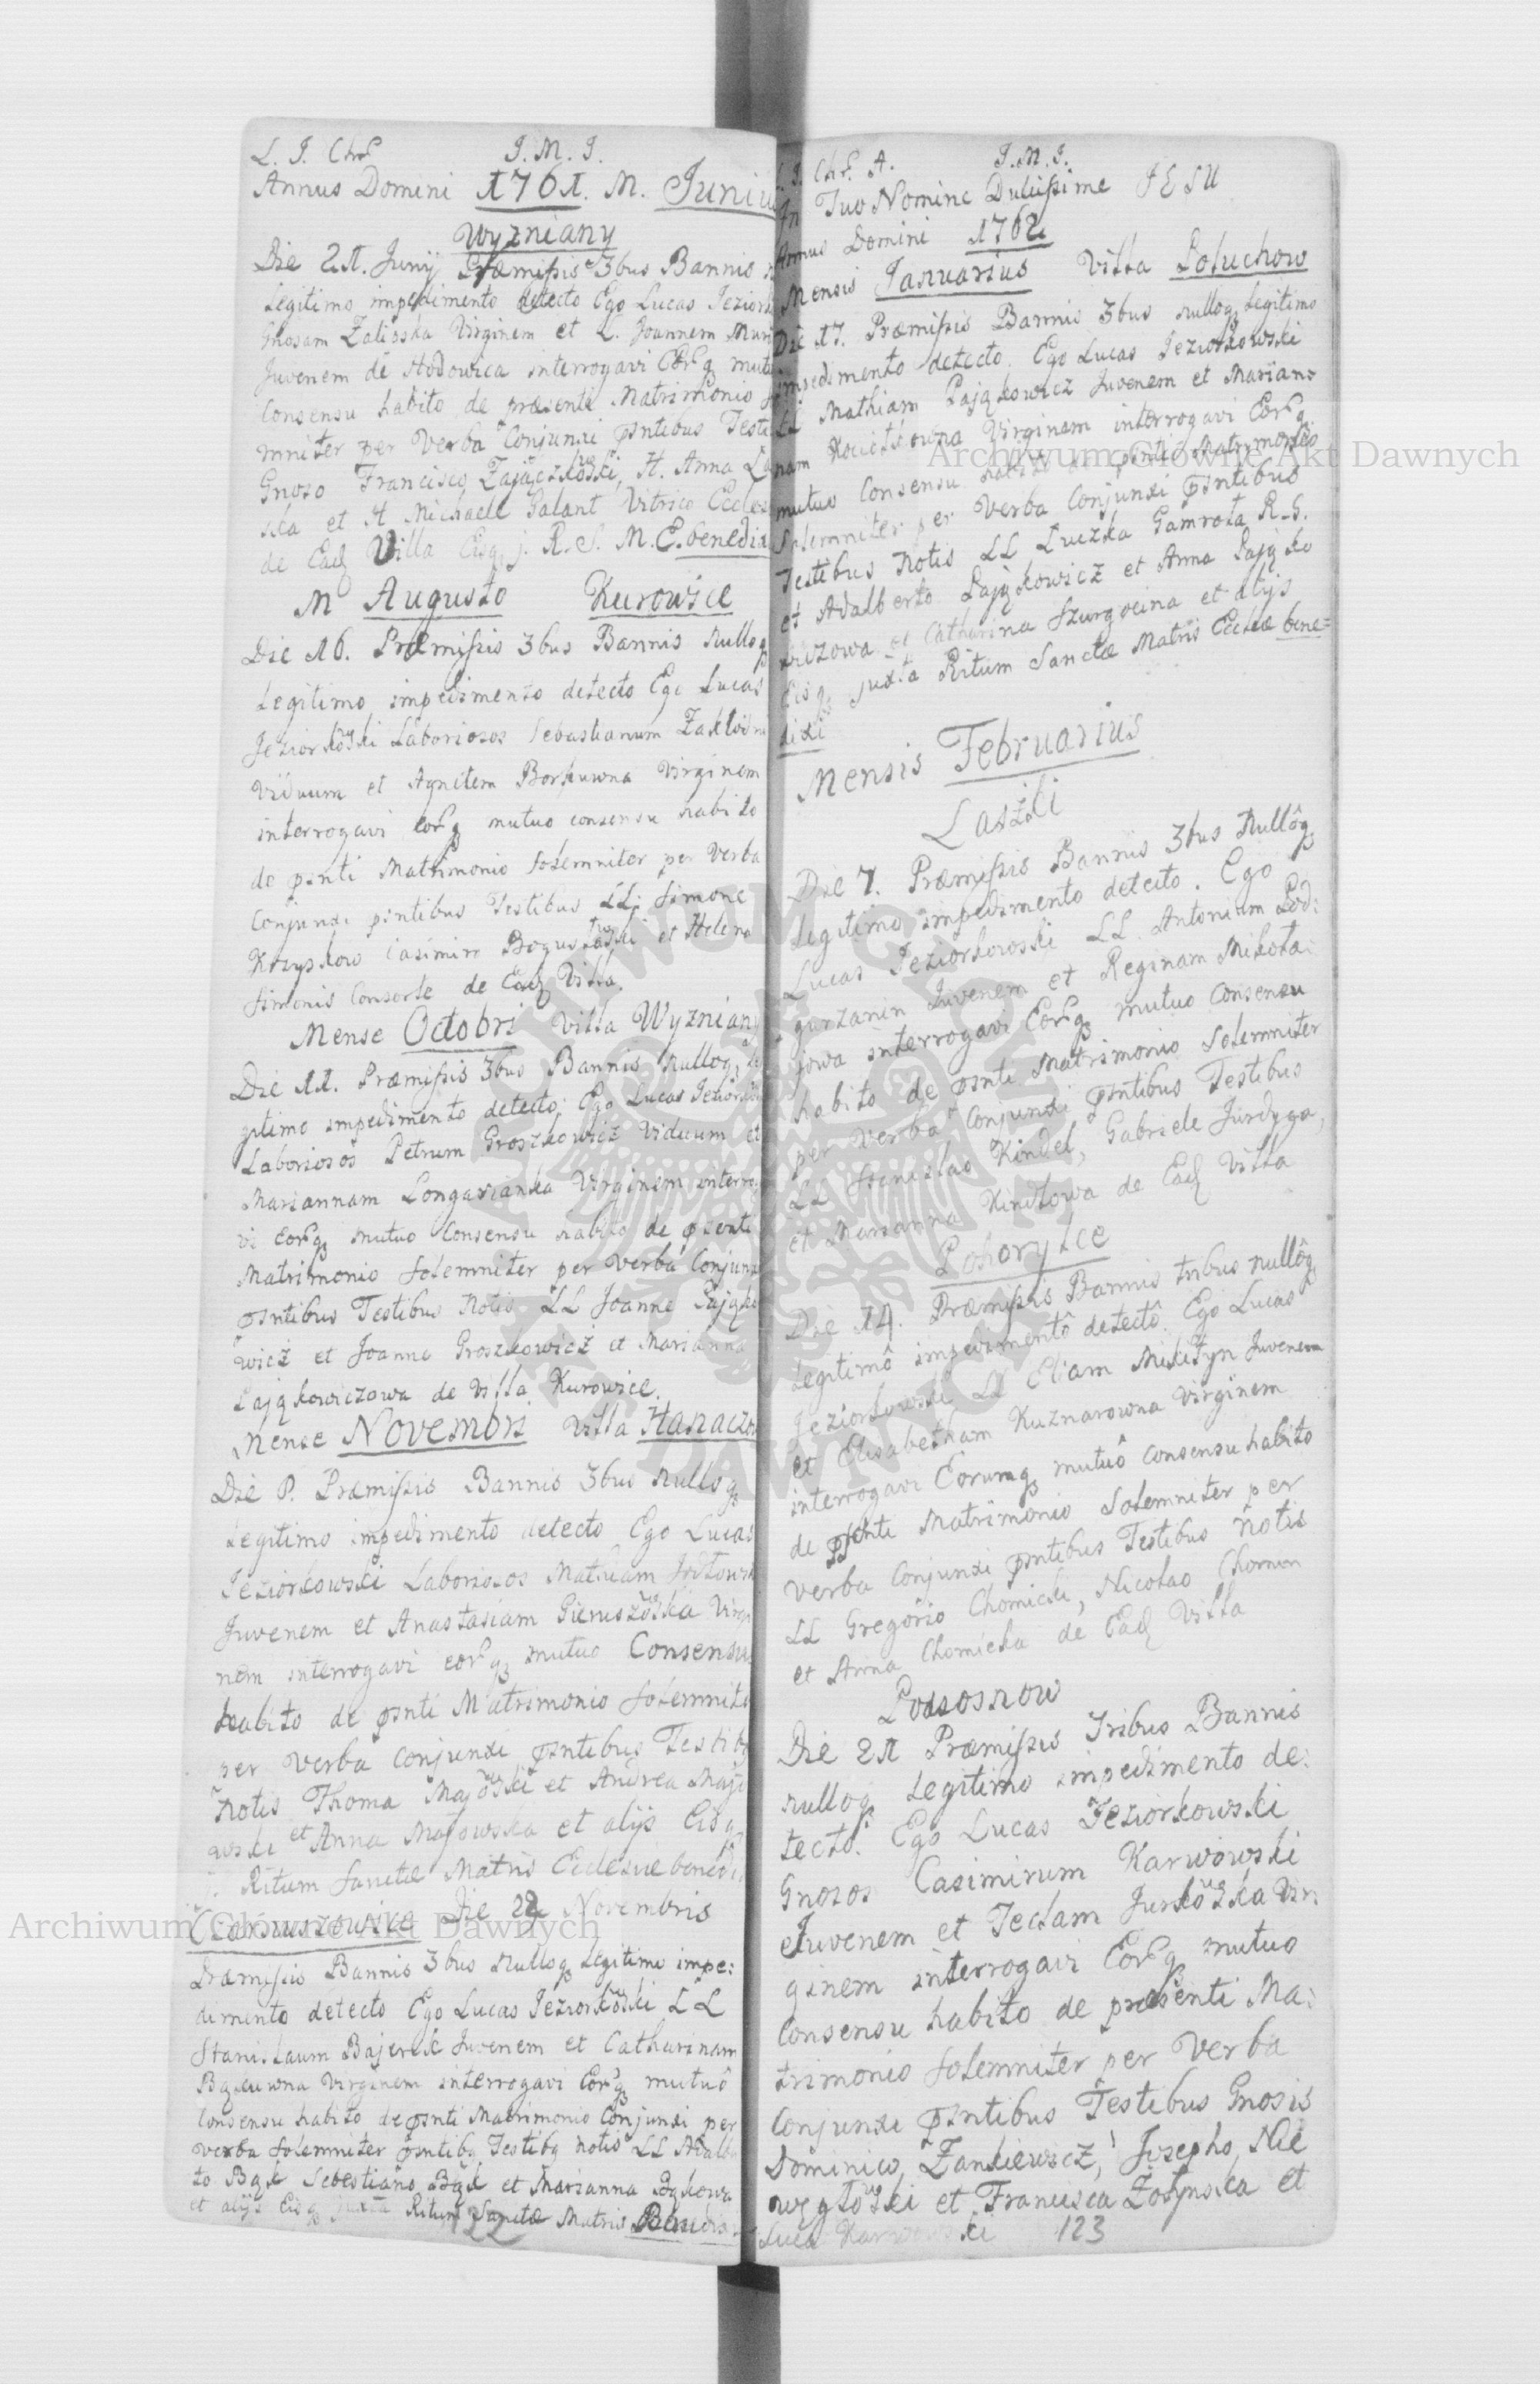 L. J. Chr
J. M. J.
Annus Domini 1761. M. Juniu
Wyzniany
Die 21. Junij Præmissis 3bus Bannis
Legitimo impedimento detecto Ego Lucas Jeziork
Gnosam Zalieska Virginem et L. Joannem
Juvenem de Hodowica interrogavi Eorq mut
Consensu habito de præsenti Matrimonio
mniter per Verba Conjunxi psntibus Testi
Gnoso Francisco Zajączkowski, H. Anna
ska et H Michaele Galant Vitrico Eccles
de Eadq Villa Eisq j. R. S. M. E. benedix
M Augusto Kurowice
Die 16. Præmissis 3bus Bannis Nulloq
Legitimo impedimento detecto Ego Lucas
Jeziorkowski Laboriosos Sebastianum
Viduum et Agnetem Borkuwna Virginem
interrogavi eorq mutuo consensu habito
de psnti Matrimonio Solemniter per Verba
Conjunxi psntibus Testibus LL. Simone
Krzyskow Casimiro Bogusławski et Helena
Simonis Consorte de Eadq Villa.
Mense Octobri Villa Wyzniany
Die 11. Præmissis 3bus Bannis Nulloq Le
gitimo impedimento detecto. Ego Lucas Jeziorkow
Laboriosos Petrum Groszkowicz Viduum et
Mariannam Longawianka Virginem interro
vi Eorq mutuo Consensu habito de psenti
Matrimonio Solemniter per Verba Conjunx
psntibus Testibus Notis LL Joanne Pająko
wicz et Joanne Groszkowicz et Marianna
Pająkowiczowa de Villa Kurowice.
Mense Novembri Villa Hanaczow
Die 8. Præmissis Bannis 3bus Nulloq
Legitimo impedimento detecto Ego Lucas
Jeziorkowski Laboriosos Mathiam
Juvenem et Anastasiam Pieruszowska Virgi
nem interrogavi eorq mutuo Consensu
habito de psnti Matrimonio Solemnite
per Verba Conjunxi psntibus Testib
Notis Thoma Majowski et Andrea Maj
owski et Anna Majowska et alijs Eisq
j. Ritum Sanctæ Matris Ecclesiæ benedi
Die 22 Novembris
Præmissis Bannis 3bus Nulloq Legitimo impe:
dimento detecto Ego Lucas Jeziorkowski LL
Stanislaum Bajerek Juvenem et Catharinam
Bąkuwna Virginem interrogavi Eorq mutuô
Consensu habito de psnti Matrimonio Conjunxi per
Verba Solemniter psntibq Testibq Notis LL Adalber
to Bąk Sebestiano Bąk et Marianna Bąkowa
et alijs Eisq juxta Ritum Sanctæ Matris Benedix
122
J. Chr. A.
J. M. J.
In Tuo Nomine Dulcissime JESU
Annus Domini 1762
Mensis Januarius Villa Poluchow
Die 17. Præmissis Bannis 3bus nulloq Legitimo
impedimento detecto. Ego Lucas Jeziorkowski
LL Mathiam Pająkowicz Juvenem et Marian=
nam Virginem interrogavi Eorq
mutuo Consensu habito de psnti Matrimonio
Solemniter per Verba Conjunxi psntibus
Testibus Notis LL Luczka Gamrota R. G.
et Adalberto Pająkowicz et Anna Pająko
wiczowa et Catharina Szurgocina et alijs
Eisq juxta Ritum Sanctæ Matris Eccleæ bene=
dixi
Mensis Februarius
Laszki
Die 7. Præmissis Bannis 3bus Nullôq
Legitimo impedimento detecto. Ego
Lucas Jeziorkowski LL Antonium Pod:
gurzanin Juvenem et Reginam Mikoła:
jowa interrogavi Eorq mutuo Consensu
habito de psnti Matrimonio Solemniter
per Verba Conjunxi psntibus Testibus
LL Stanislao Kindel, Gabriele Jurdyga,
et Marianna Kindlowa de Eadq Villa
Pohorylce
Die 14. Præmissis Bannis tribus nullôq
Legitimô impedimentô detectô. Ego Lucas
Jeziorkowski LL Eliam Mikityn Juvenem
et Elisabetham Kuznarowna Virginem
interrogavi Eorumq mutuô Consensu habito
de psenti Matrimonio Solemniter per
Verba Conjunxi psntibus Testibus Notis
LL Gregorio Chomicki, Nicolao Chomin
et Anna Chomicka de Eadq Villa
Podsosnow
Die 21 Præmissis Tribus Bannis
nulloq Legitimo impedimento de:
tecto. Ego Lucas Jeziorkowski
Gnosos Casimirum Karwowski
Juvenem et Teclam Jurkowska Vir:
ginem interrogavi Eorq mutuo
Consensu habito de præsenti Ma:
trimonio Solemniter per Verba
Conjunxi psntibus Testibus Gnosis
Dominico Zankiewicz, Josepho Nie
węgłowski et Francisca Zołynska et
Luca Karwowski
123
Archiwum Główne Akt Dawnych
Archiwum Główne Akt Dawnych
ARCHIWUM GŁÓWNE AKT DAWNYCH